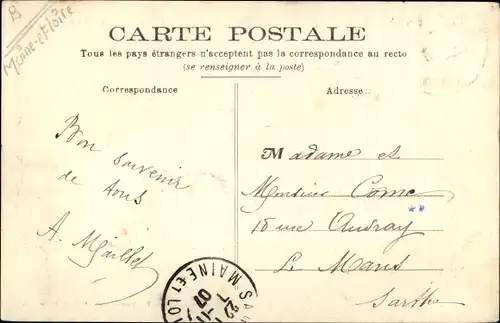 B
Maine-et-Loire
CARTE POSTALE
Tous les pays étrangers n'acceptent pas la correspondance au recto
(se renseigner à la poste)
Correspondance
Adresse
Bon souvenir
de tous
A. Maillet
Madame et
Monsieur Come
18 rue Audray
Le Mans
Sarthe
MAINE-ET-LOI
07